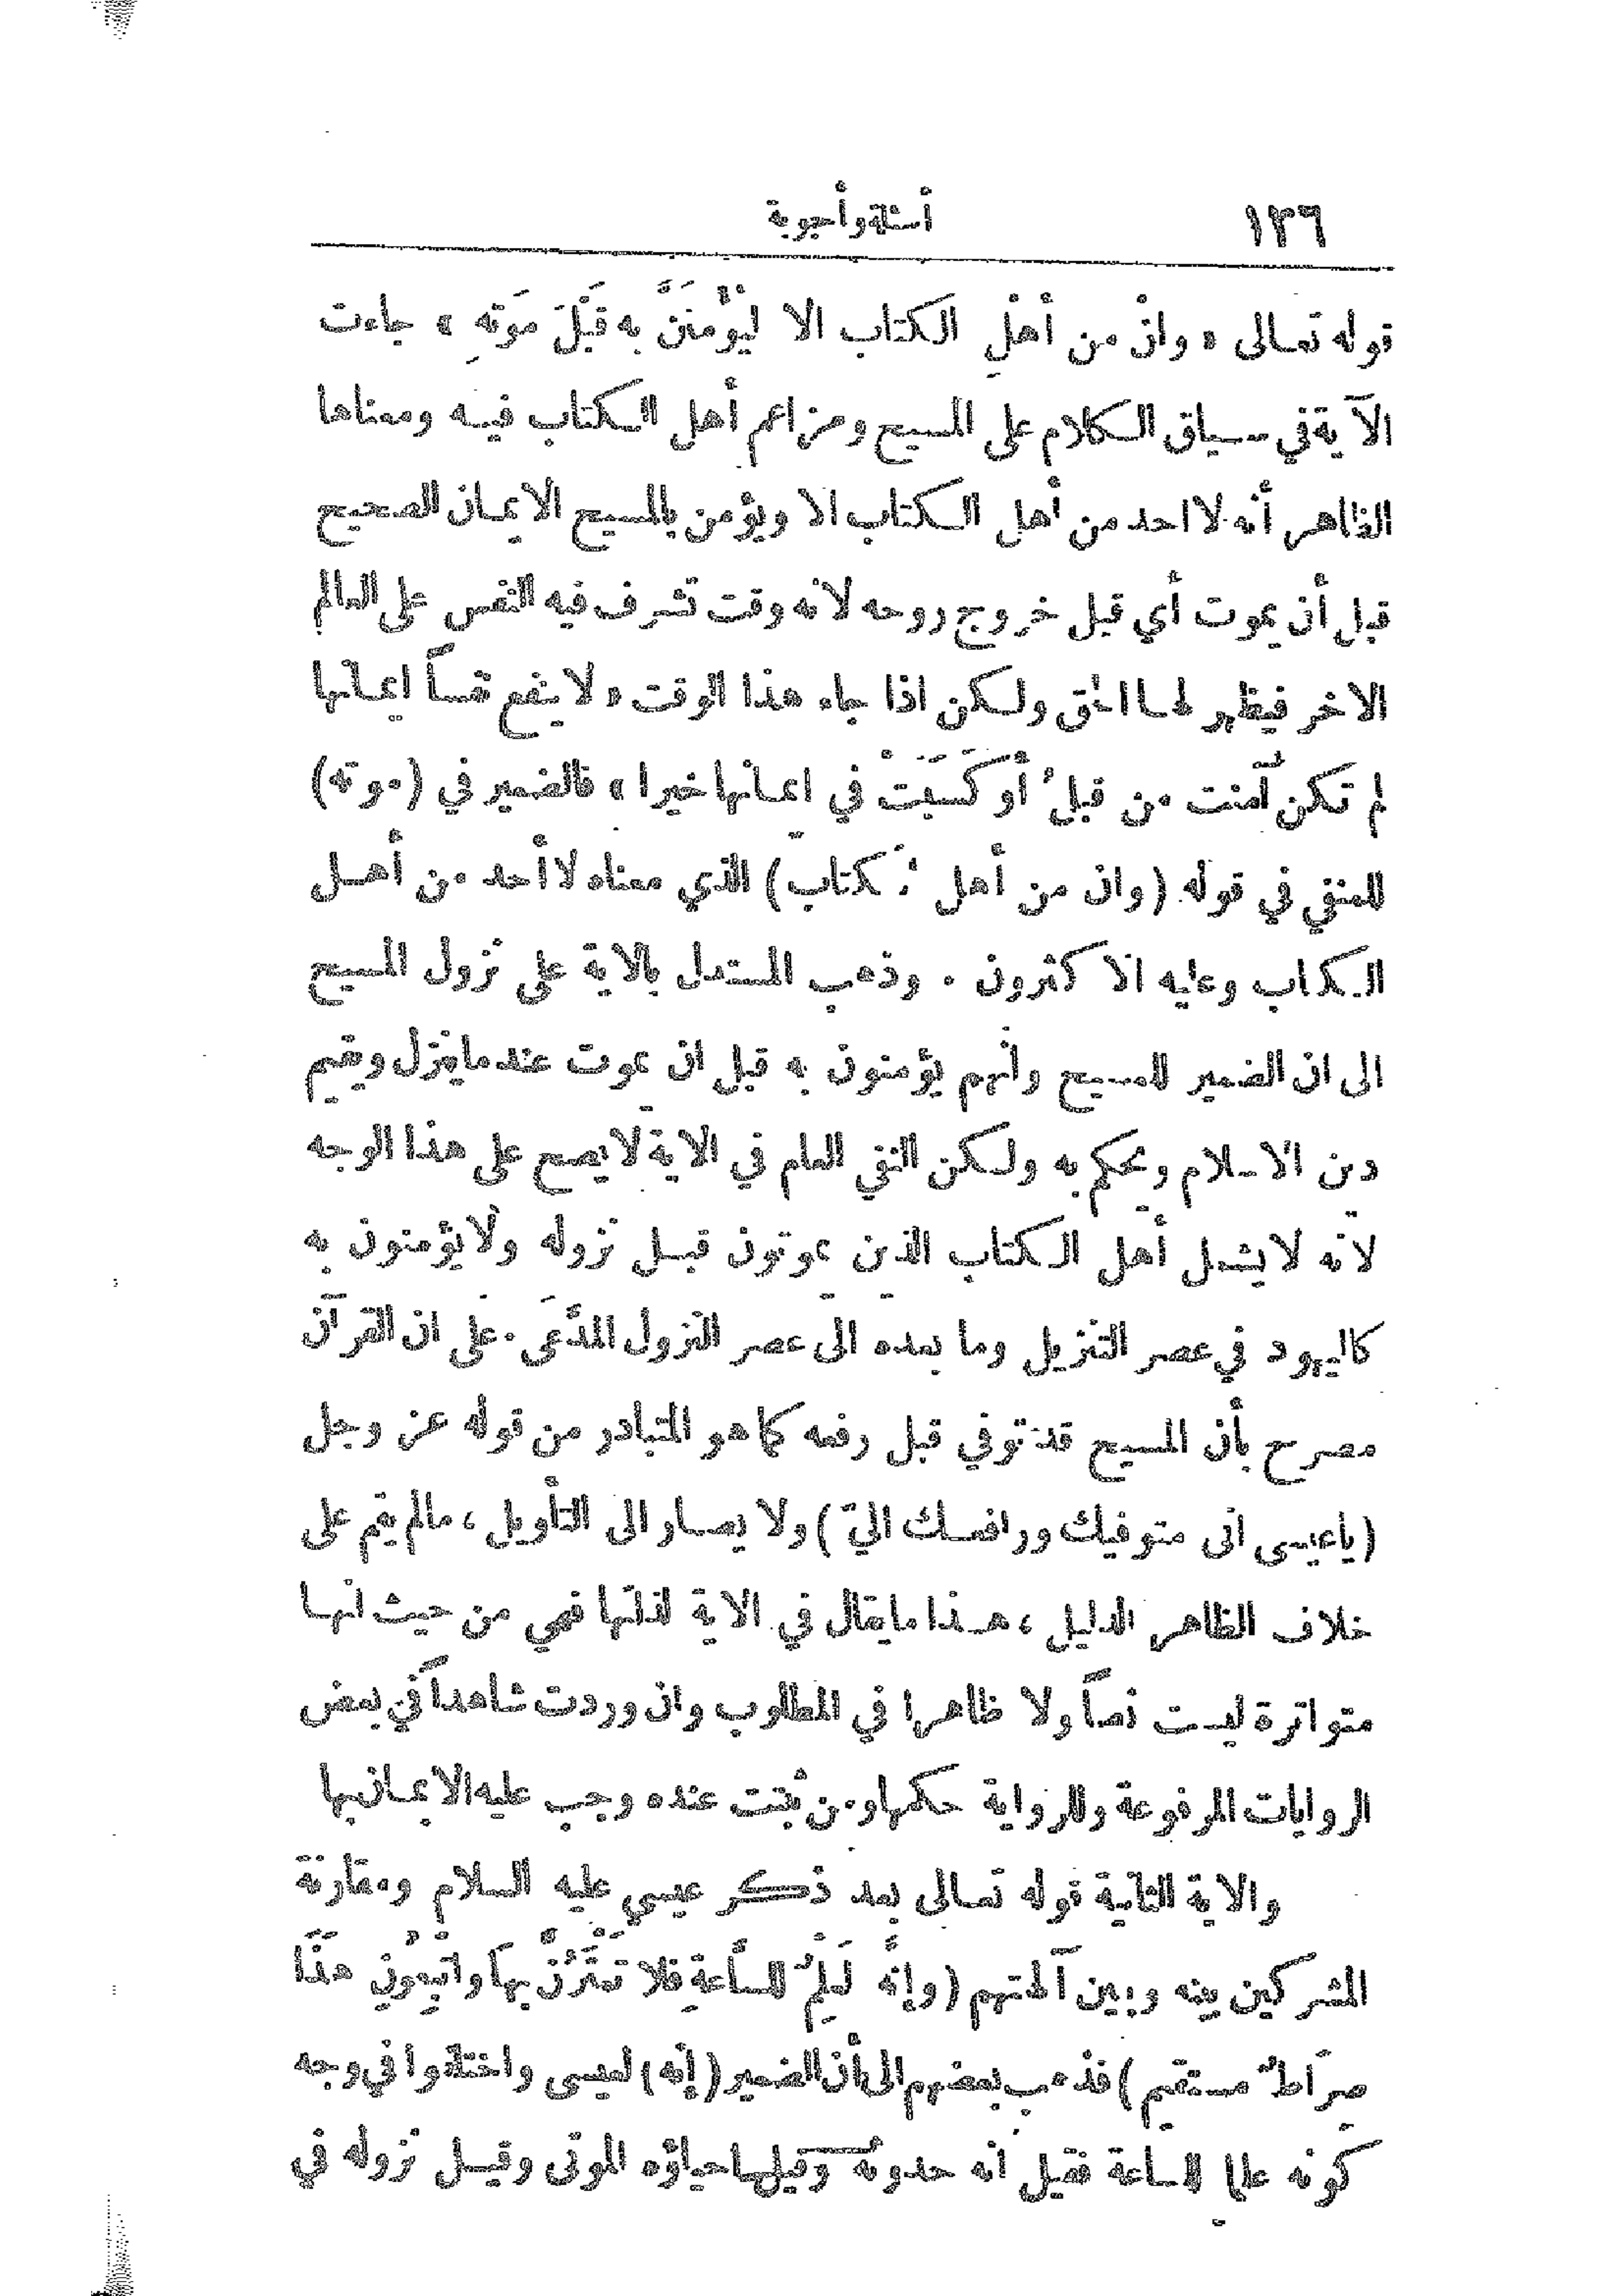 ١٣٦
أسئلة وأجوبة
قوله تعالى « وانْ من أهلِ الكتاب الا ليُؤْمنَنَّ به قَبْلَ مَوْتهِ » جاءت
الآية في سياق الكلام على المسيح ومزاعم أهل الكتاب فيه ومعناها
الظاهر أنه لا احد من أهل الكتاب الا ويؤمن بالمسيح الايمان الصحيح
قبل أن يموت أي قبل خروج روحه لانه وقت تشرف فيه النفس على العالم
الاخر فيظهر لها الحق ولكن اذا جاء هذا الوقت « لا ينفع نفساً ايمانها
لم تكن آمنت من قبلُ أو كَسَبَتْ في ايمانها خيرا » فالضمير في (موته)
للمنفي في قوله (وان من أهل الكتاب) الذي معناه لا أحد من أهل
الكتاب وعليه الاكثرون . وذهب المستدل بالاية على نزول المسيح
الى ان الضمير للمسيح وأنهم يؤمنون به قبل ان يموت عند ما ينزل ويقيم
دين الاسلام ويحكم به ولكن النفي العام في الاية لا يصح على هذا الوجه
لانه لا يشمل أهل الكتاب الذين يموتون قبل نزوله ولا يؤمنون به
كاليهود في عصر التنزيل وما بعده الى عصر النزول المدَّعَى . على ان القرآن
مصرح بأن المسيح قد توفي قبل رفعه كما هو المتبادر من قوله عز وجل
(ياعيسى انى متوفيك ورافعك اليّ) ولا يصار الى التأويل ، مالم يقم على
خلاف الظاهر الدليل ، هذا ما يقال في الاية لذاتها فهي من حيث انها
متواترة ليست نصاً ولا ظاهرا في المطلوب وان وردت شاهداً في بعض
الروايات المرفوعة وللرواية حكمها ومن ثبتت عنده وجب عليه الايمان بها
والاية الثانية قوله تعالى بعد ذكر عيسى عليه السلام ومقارنة
المشركين بينه وبين آلهتهم (وإنَّه لَعِلْمٌ للسَّاعةِ فلا تَمْتَرُنَّ بها واتَّبِعُونِ هذَا
صرَاطٌ مستقيم) فذهب بعضهم الى أن الضمير (إنه) لعيسى واختلفوا في وجه
كونه علما للساعة فقيل انه حدوثه وقيل احياؤه الموتى وقيل نزوله في